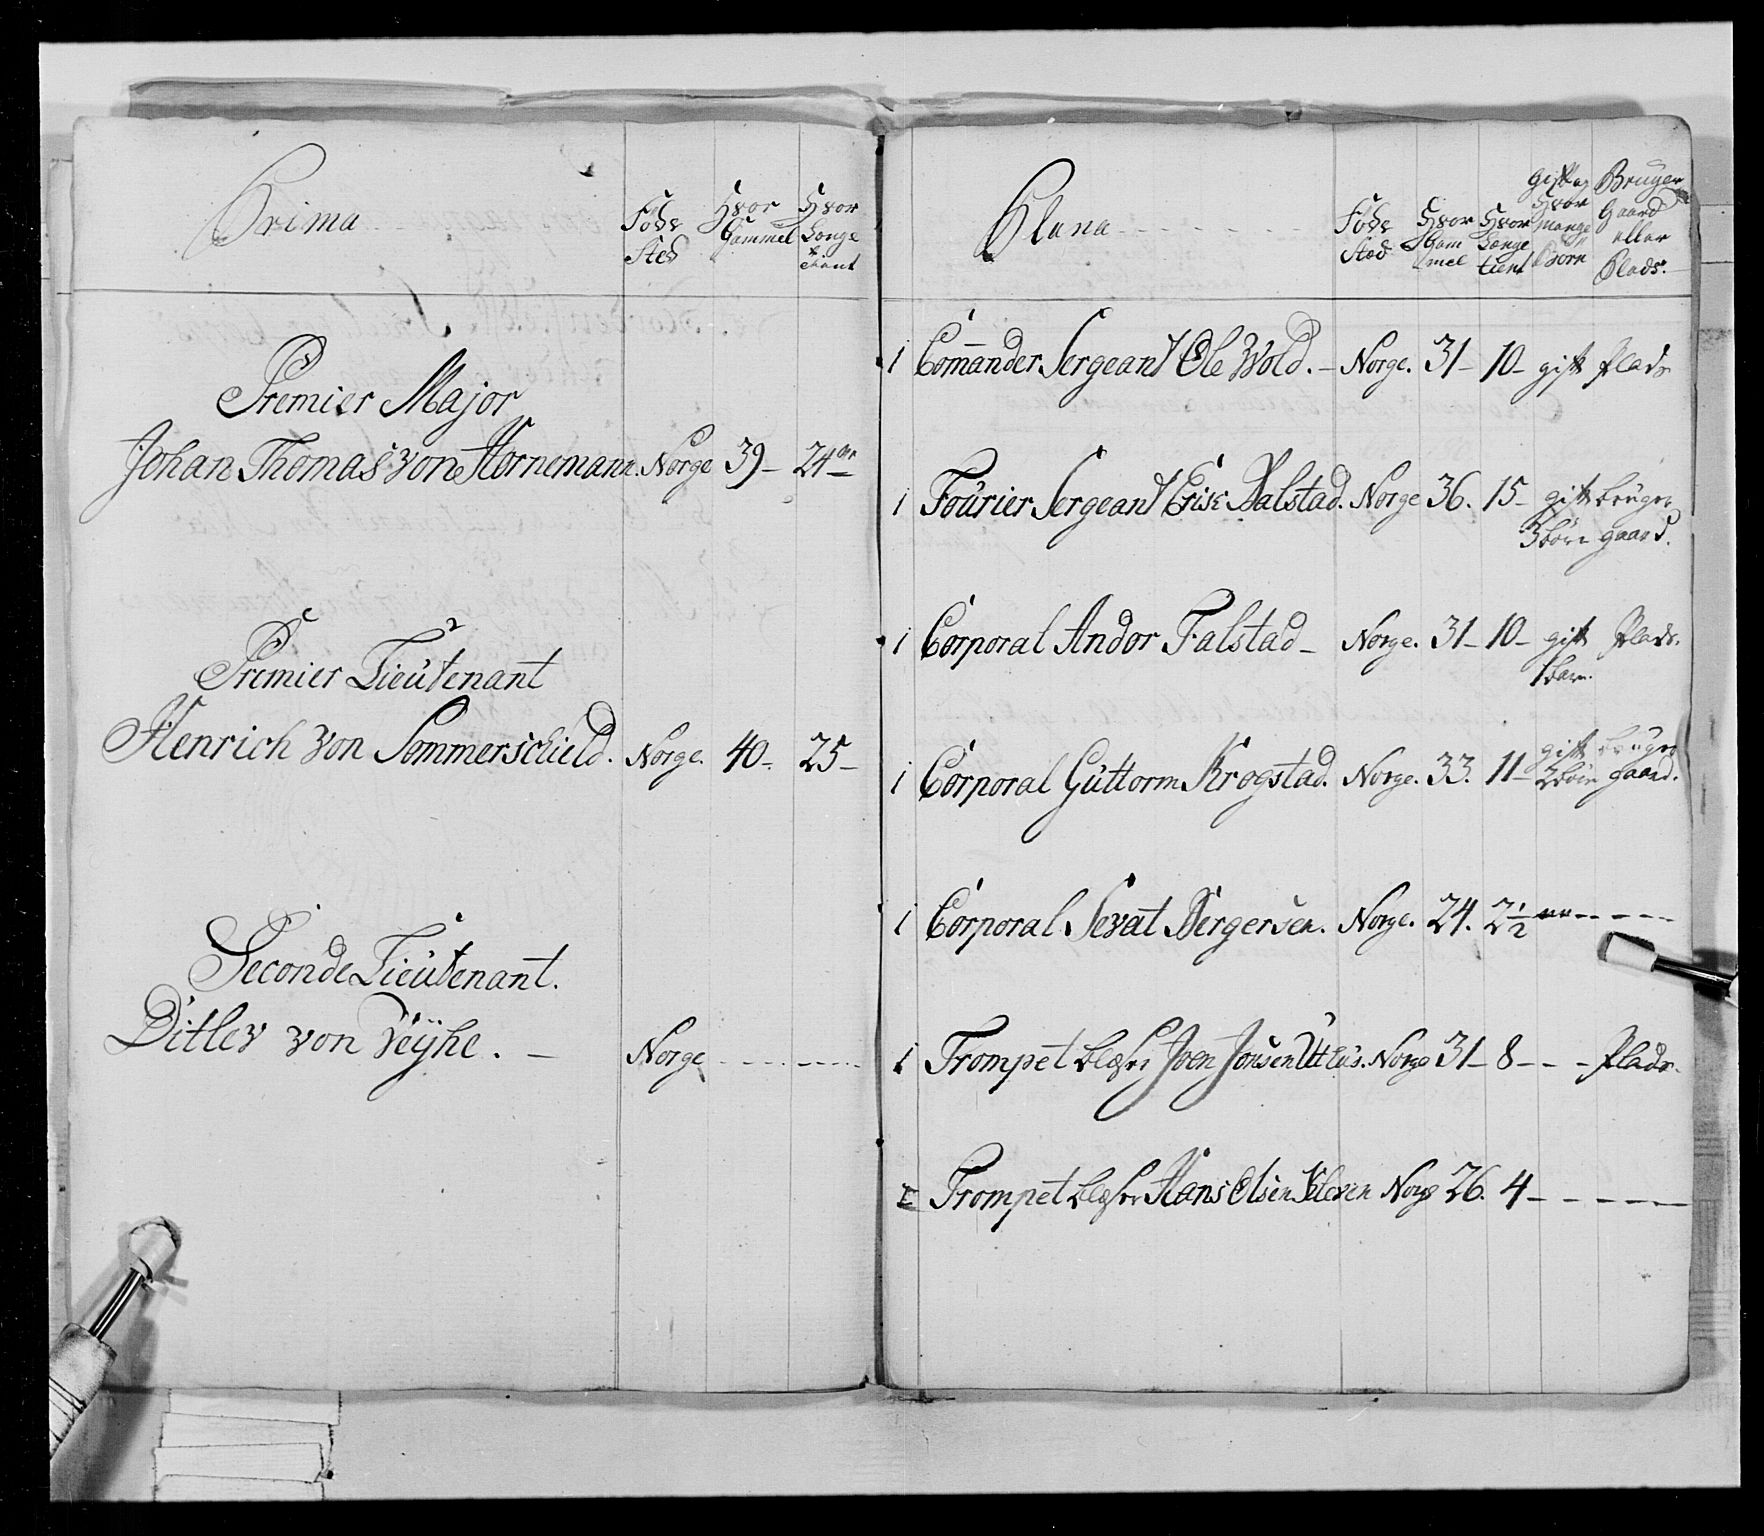 Prima
Føde Sted
Hvor Gammel
Hvor Længe tient
Premier Major
Johan Thomas von Hornemann. Norge 39 – 24 Aar
Premier Lieutenant
Henrich von Sommerschield. Norge. 40 – 25 –
Seconde Lieutenant.
Ditlev von Reÿhe. – Norge
Plana
Føde Sted
Hvor Gam mel
Hvor Længe tient
Gift og Hvor mange Børn
Bruger Gaard eller Plads.
1 Com̄ander Sergeant Ole Wold. – Norge. 31 – 10 – gift Plads
1 Fourier Sergeant Erik Dalstad. Norge 36. 15 – gift bruger
3 børn gaard.
1 Corporal Andor Falstad – Norge. 31 – 10 – gift Plads.
1 barn.
gift bruger
1 Corporal Guttorm Krogstad. Norge. 33. 11 – 3 børn gaard.
1 Corporal Sevat Bergersen. Norge. 24. 2 1/2
1 Trompet blæser Joen Jonsen Uthus. Norge 31 – 8 – – – Plads.
1 Trompet blæser Hans Olsen Kleven Norge 26. 4 –